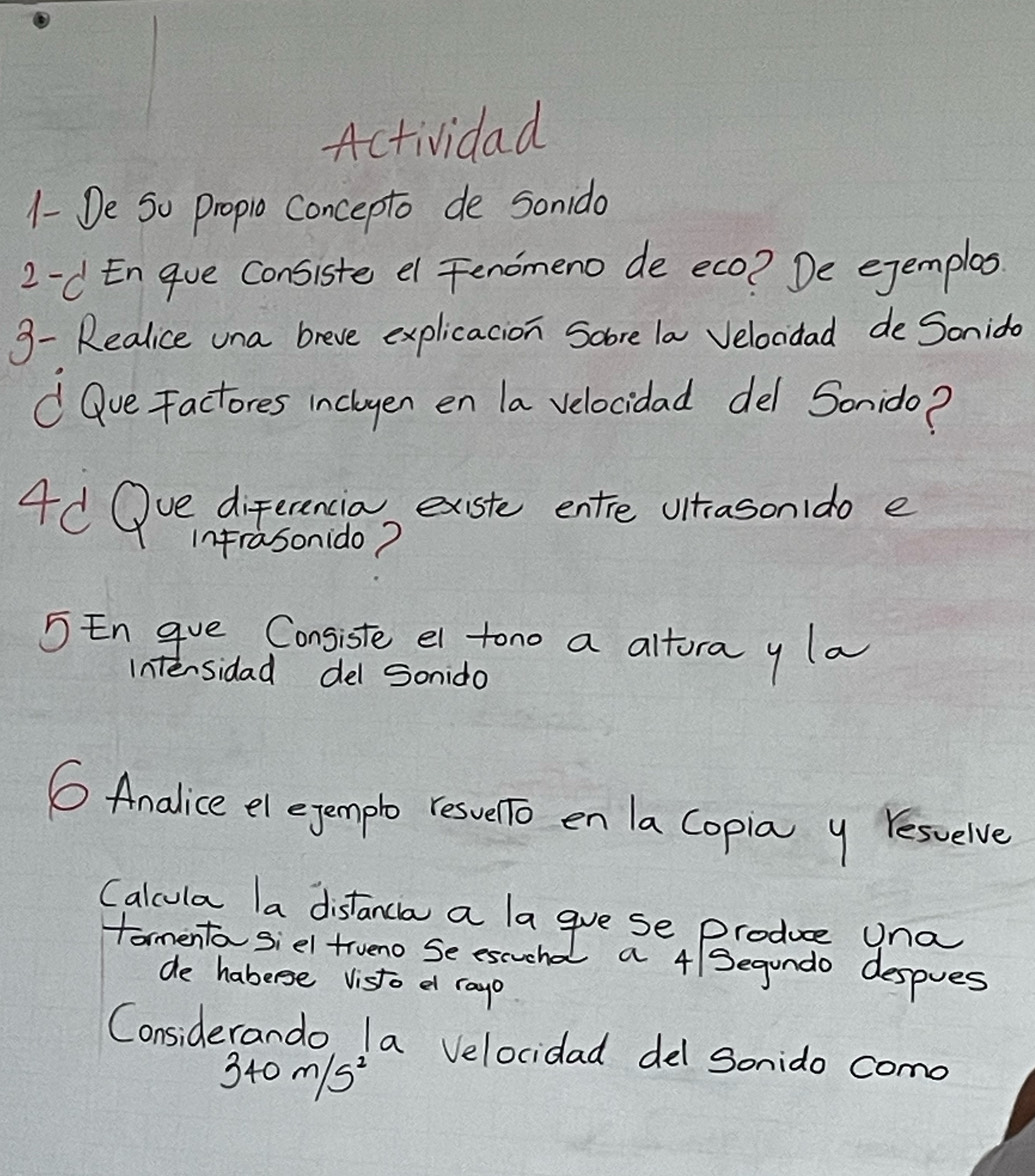 Actividad
1- De su propio concepto de sonido
2-¿ En que consiste el Fenómeno de eco? De ejemplos.
3- Realice una breve explicación sobre la velocidad de Sonido
¿ Que Factores incluyen en la velocidad del Sonido?
4¿ Que diferencia existe entre ultrasonido e
infrasonido?
5 En que Consiste el tono a altura y la
intensidad del sonido
6 Analice el ejemplo resuelto en la copia y resuelve
Calcula la distancia a la que se produce una
tormenta si el trueno se escucha a 4 segundo despues
de haberse visto el rayo
Considerando la velocidad del sonido como
340 m/s²